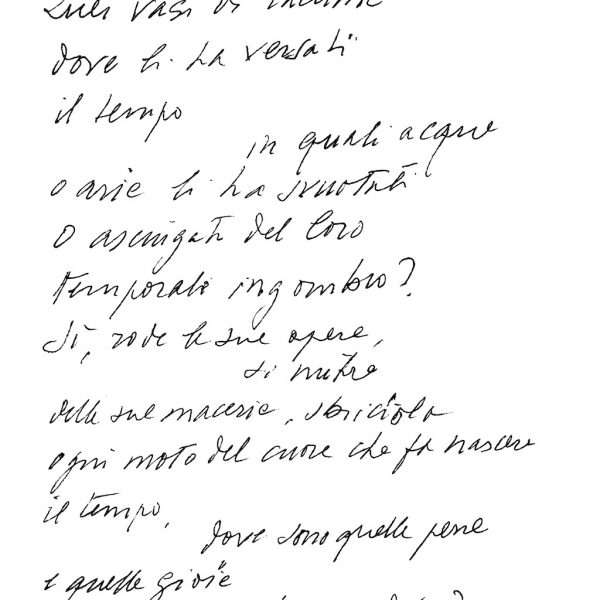 Quei vasi di lacrime
dove li ha versati
il tempo
in quali acque
o arie li ha svuotati
o asciugati del loro
temporale ingombro?
Sì, rode le sue opere,
si nutre
delle sue macerie, sbriciola
ogni moto del cuore che fa nascere
il tempo,
dove sono quelle pene
e quelle gioie